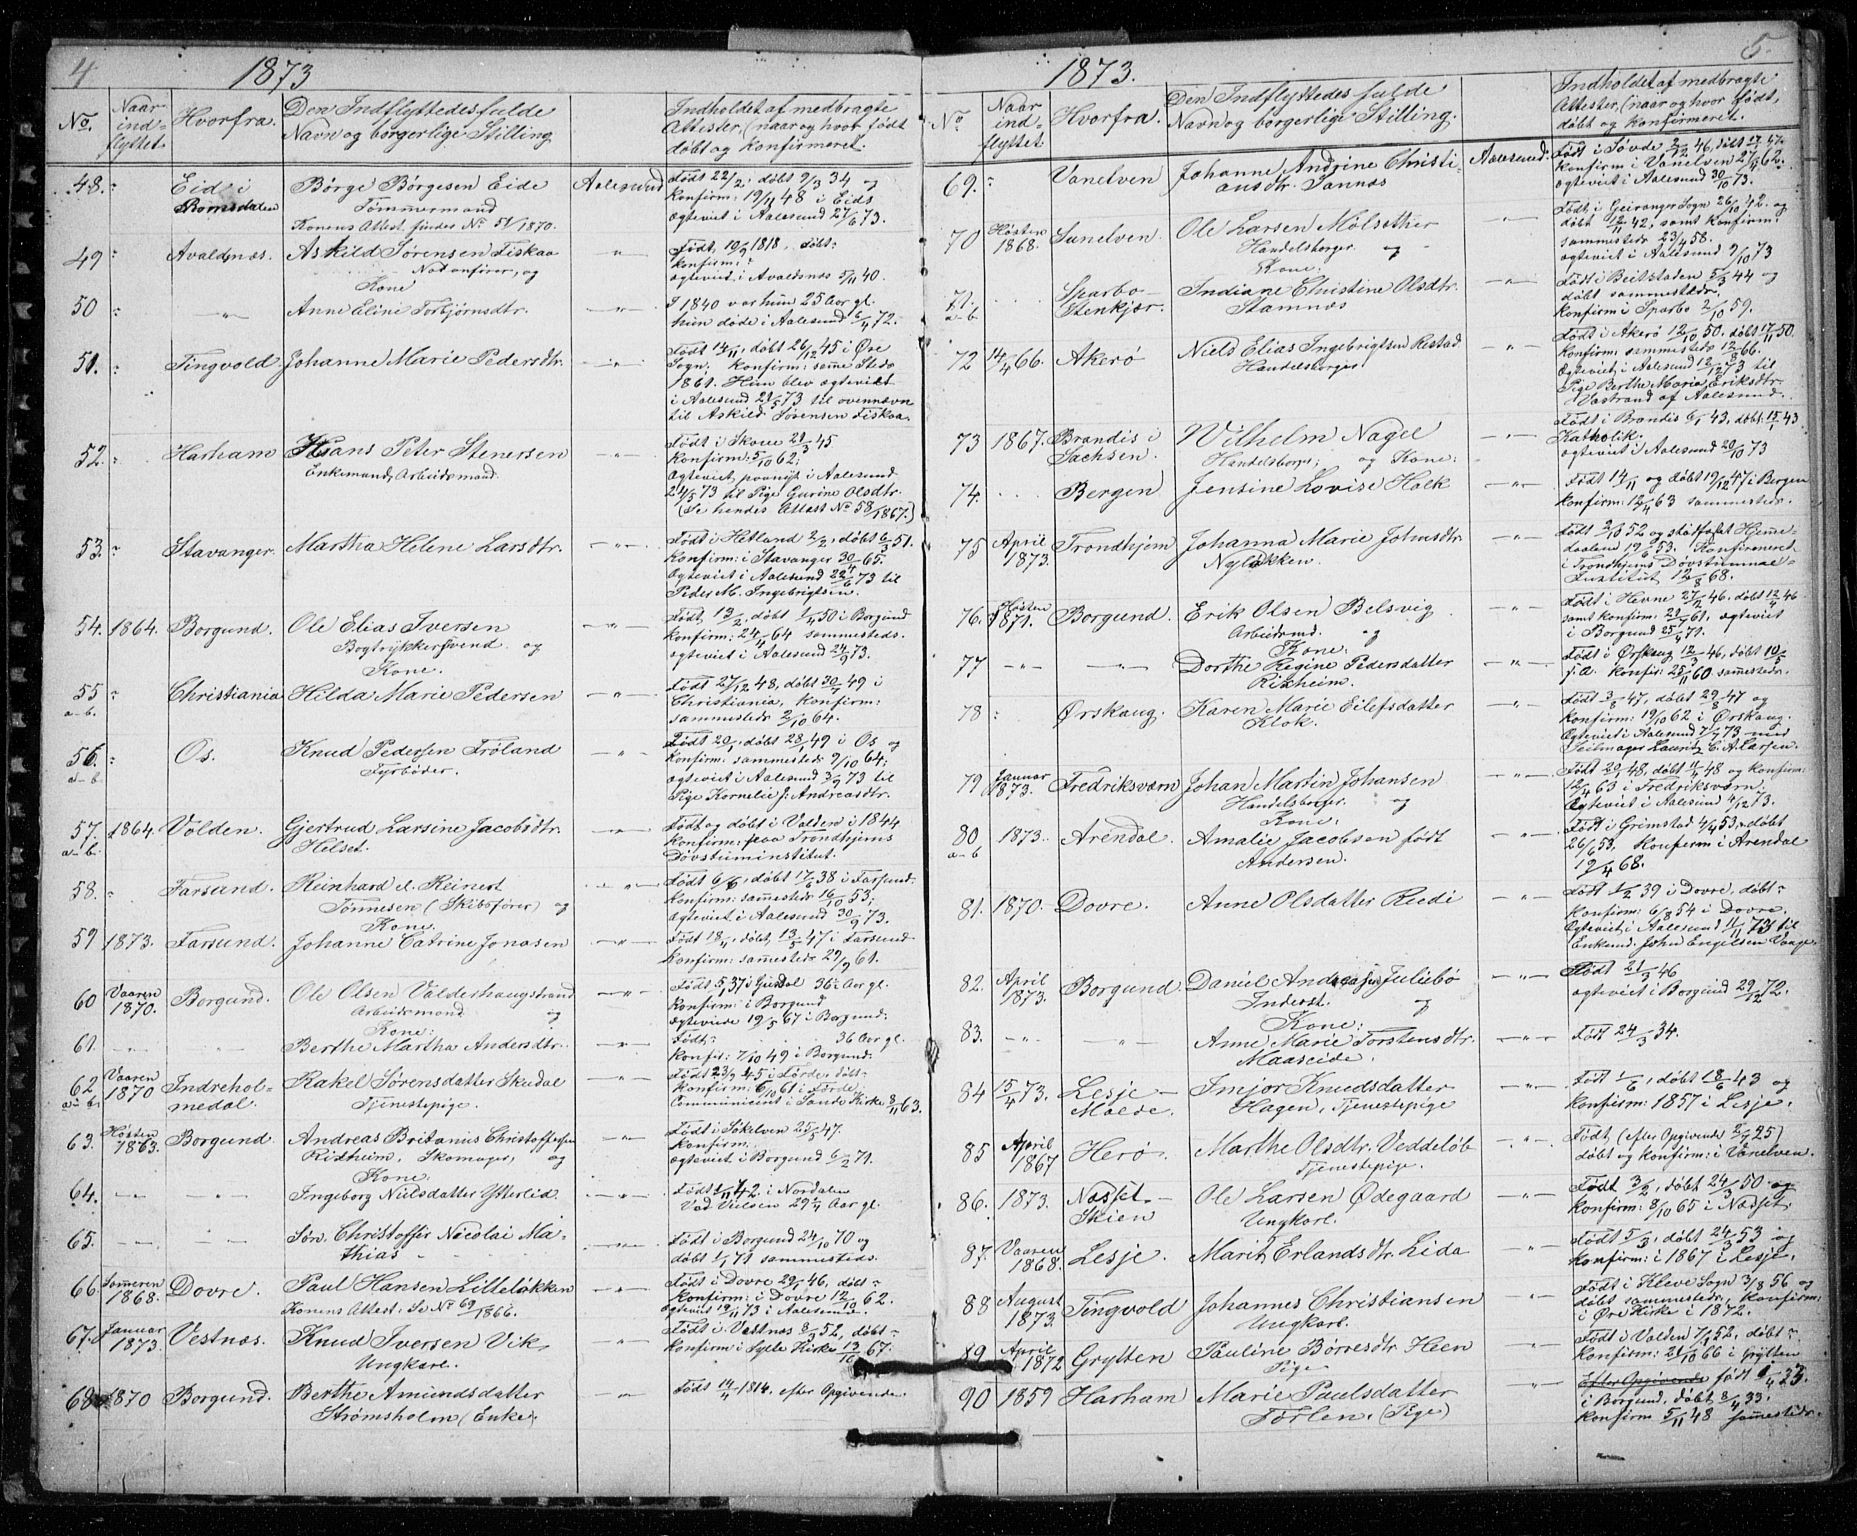 4
1873
No.
Naar ind-flyttet.
Hvorfra.
Den Indflyttedes fulde
Navn og borgerlige Stilling
Indholdet af medbragte
Attester, (naar og hvor født
døbt og konfirmeret.
48. Eid i Romsdalen
Børge Børgesen Eide
Tømmermand
Konens Attest findes No 51/1870.
Aalesund
Født 22/2, døbt 9/3 34 og
konfirm: 19/11 48 i Eids
ægteviet i Aalesund 27/6 73.
49 Avaldsnæs. Askild Sørensen Fiskaa
Notenfører, og
Kone
Født 10/9 1818, døbt:
konfirm:
ægteviet i Avaldsnæs 5/11 40.
50 Anne Eline Torbjørnsdtr.
I 1840 var hun 25 Aar gl.
hun døde i Aalesund 6/4 72.
51. Tingvold Johanne Marie Pedersdtr.
Født 14/11, døbt 26/12 45 i Øre
Sogn, konfirm: samme Sted
1861. Hun blev ægteviet
i Aalesund 21/5 73 til ovennævn
til Askild Sørensen Fiskaa.
52. Harham Hans Peter Stenersen
Enkemand, Arbeidsmand.
Født i Skone 21/3 45
Konfirm: 5/10 62;
Ægteviet paanyt i Aalesund
24/5 73 til Pige Gurine Olsdtr.
(Se hendes Attest No 58/1867.)
53. Stavanger. Martha Helene Larsdtr.
Født i Hetland 2/2, døbt 6/3 51.
konfirm: i Stavanger 30/4 65.
Ægteviet i Aalesund 22/6 73 til
Peder M. Ingebrigtsen.
54. 1864. Borgund. Ole Elias Iversen
Bogtrykkersvend. og
Kone.
Født 13/2, døbt 1/4 50 i Borgund
konfirm: 24/4 64 sammesteds.
ægteviet i Aalesund 24/9 73.
55 a-b. Christiania Hilda Marie Pedersen
Født 27/12 48, døbt 30/7 49 i
Christiania, konfirm:
sammesteds 2/10 64.
56. a-b. Os. Knud Pedersen Frøland
Fyrbøder.
Født 20/1, døbt 28/1 49 i Os og
konfirm: sammesteds 9/10 64;
ægteviet i Aalesund 3/9 73 til
Pige Kornelie J: Andreasdtr.
57. a-b. 1864. Volden. Gjertrud Larsine Jacobsdtr.
Helset.
Født og døbt i Volden i 1844
konfirm: paa Trondhjems
Døvstuminstitut.
58. Farsund. Reinhard el. Reinert
Tønnesen (Skibsfører) og
Kone.
Født 6/6, døbt 17/6 38 i Farsund
konfirm: sammesteds 16/10 53;
ægteviet i Aalesund 30/9 73.
59 1873. Farsund. Johanne Catrine Jonasen
Født 18/4, døbt 13/5 47 i Farsund
konfirm: samesteds 29/9 61.
60 Vaaren 1870. Borgund. Ole Olsen Valderhaugstrand
Arbeidsmand og
Kone:
36 Aar gl.
konfirm i Borgund
ægteviede 19/5 67 i Borgund:
61. Berthe Martha Andersdtr.
Født: 36 Aar gl.
konfir: 7/10 49 i Borgund.
62 a-b. Vaaren 1870 Indrehol-medal. Rakel Sørensdatter Skudal
Tjenestepige.
Født 23/7 45 i Førde, døbt:
konfirm: 6/10 61 i Førde
Communicent i Sande Kirke 8/11 63.
63. Høsten 1863. Borgund Andreas Britanius Christoffersen
Rixheim. Skomager, og
Kone.
Født i Søkelven 25/5 47.
konfirm.
ægteviet i Borgund 6/2 71.
64. Ingeborg Nielsdatter Ytterlid.
Født 1/11 42 i Nordalen
Ved Vielsen 29 1/4 Aar gl.
65. Søn. Christoffer Nicolai Ma-
thias
Født i Borgund 24/10 70 og
døbt 1/1 71 sammesteds.
66. Someren 1868. Dovre. Paul Hansen Lilleløkken
Konens Attest: Se No 69/1866.
Født i Dovre 29/1 46, døbt:
konfirm: i Dovre 12/10 62.
ægteviet 19/11 73 i Aalesund.
67. Januar 1873. Vestnæs. Knud Iversen Vik,
Ungkarl.
Født i Vestnæs 8/3 52, døbt:
konfirm i Sylte Kirke 13/10 67.
68 1870 Borgund. Berthe Amundsdatter
Strømsholm (Enke).
Født 14/4 1814. efter Opgivende.
5.
1873.
No
Naar ind-flyttet
Hvorfra.
Den Indflyttedes fulde
Navn og borgerlige Stilling.
Indholdet af medbragte
Attester, (naar og hvor født,
døbt og konfirmeret.
69. Vanelven Johanne Andrine Christi-
ansdtr. Sannæs
Aalesund.
Født i Søvde 2/12 46, døbt
konfirm i Vanelven 27/4 62.
ægteviet i Aalesund 30/10 73.
70 Høsten 1868. Sunelven. Ole Larsen Molsether
Handelsborger. og
Kone.
Født, i Geiranger Sogn 26/10 42. og
døbt 12/11 42, samt konfirm:
sammesteds 23/4 58.
ægteviet i Aalesund 9/10 73
71. a-b Sparbo-
Stenkjær. Indiane Christine Olsdtr.
Stamnæs
Født i Beitstaden 5/3 44 og
døbt sammesteds.
konfirm i Sparbo 2/10 59.
72 14/4 66. Akerø Niels Elias Ingebrigtsen Restad
Handelsborger
Født i Akerø 12/10 50, døbt 17/11 50
konfirm: sammesteds 12/8 66.
Ægteviet i Aalesund 12/12 73 til
Pige Berthe Maria Eriksdtr.
Vastrand af Aalesund.
73 1867. Brandis i
Sachsen. Wilhelm Nagel
Handelsborger; og Kone:
Født i Brandis 6/1 43, døbt 15/1 43
Katholik.
ægteviet i Aalesund 20/10 73
74. Bergen Jensine Lovise Holk
Født 14/11 og døbt 19/12 47 i Bergen
konfirm: 12/4 63 sammesteds.
75 April 1873. Trondhjem Johanna Marie Johnsdtr.
Nyløkken.
Født 3/10 52 og stadfæstet Hjemme-
daaben 19/6 53. Konfirmeret
i Trondhjems Døvstumme-
Institut 12/8 68.
76. Høsten 1871. Borgund. Erik Olsen Belsvig
Arbeidsmd. og
Kone.
Født i Hevne 27/2 46, døbt 12/4 46
samt konfirm: 21/7 61, ægteviet
i Borgund 25/4 71.
77 Dorthe Regine Pedersdatter
Rixheim.
Født i Ørskaug 12/3 46, døbt 10/5
s. A. konfir: 25/11 60 samesteds.
78 Ørskaug. Karen Marie Eilefsdatter
Klok.
Født 3/8 47, døbt 29/8 47 og
konfirm: 19/10 62 i Ørskaug.
Ægteviet i Aalesund 7/9 73 med
Seilmager Lauritz C. A. Larsen.
79 Januar 1873. Fredriksværn Johan Martin Johansen
Handelsborger. og
Kone:
Født 20/1 48, døbt 11/4 48 og konfirm:
12/4 63 i Fredriksværn.
Ægteviet i Aalesund 4/12 73.
80 a-b 1873. Arendal. Amalie Jacobsen født
Andersen.
Født i Grimstad 4/4 53, døbt
26/6 53. konfirm i Arendal
19/4 68.
81. 1870. Dovre. Anne Olsdatter Riedi
Født 1/2 39 i Dovre, døbt:
konfirm: 6/8 54 i Dovre.
Ægteviet i Aalesund 11/11 73 til
Enkemd. John Engelsen Vaage.
82. April 1873. Borgund. Daniel Andreas Juliebø
Inderst. og
Kone:
Født 21/3 46
ægteviet i Borgund 29/12 72.
83. Anne Marie Torstensdtr.
Maaseide.
Født 24/3 34.
84 15/4 73. Lesje-
Molde. Imjor Knudsdatter
Hagen, Tjenestepige
Født 1/6, døbt 18/6 43 og
konfirm: 1857 i Lesje.
85 April 1867 Herø. Marthe Olsdtr. Veddeløb
Tjenestepige.
Født, (efter Opgivende 2/7 25)
døbt og konfirm: i Vanelven.
86. 1873. Næsset-
Skien Ole Larsen Ødegaard
Ungkarl.
Født 3/2, døbt 24/3 50 og
konfirm: 8/10 65 i Næsset.
87. Vaaren 1868. Lesje. Marit Erlandsdtr. Lida
Født 5/3, døbt 24/3 53 og
konfirm: i 1867 i Lesje.
88 August 1873. Tingvold Johannes Christiansen
Ungkarl.
Født i Kleve Sogn 3/8 56 og
døbt sammesteds, konfirm:
i Øre Kirke i 1872.
89 April 1872 Grytten Pauline Børresdtr. Heen
Pige
Født i Volden 7/9 52, døbt-
konfirm: 21/10 66 i Grytten
90 1859 Harham Marie Paulsdatter
Førlen. (Pige)
Efter Opgivende født 1/4 33.
i Borgund, døbt 8/4 33.
konfirm 5/11 48 samesteds.